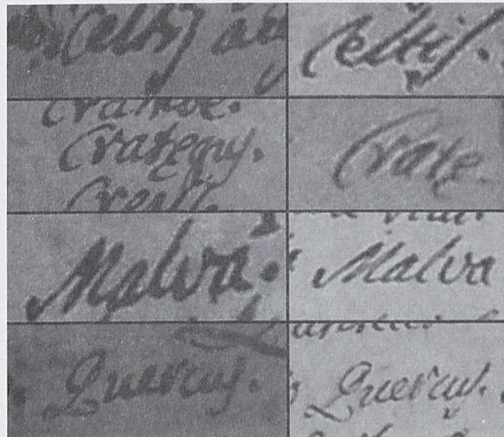 Celtis
Celtis.
Crategus.
Crate
Malva.
Malva
Quercus.
Quercus.